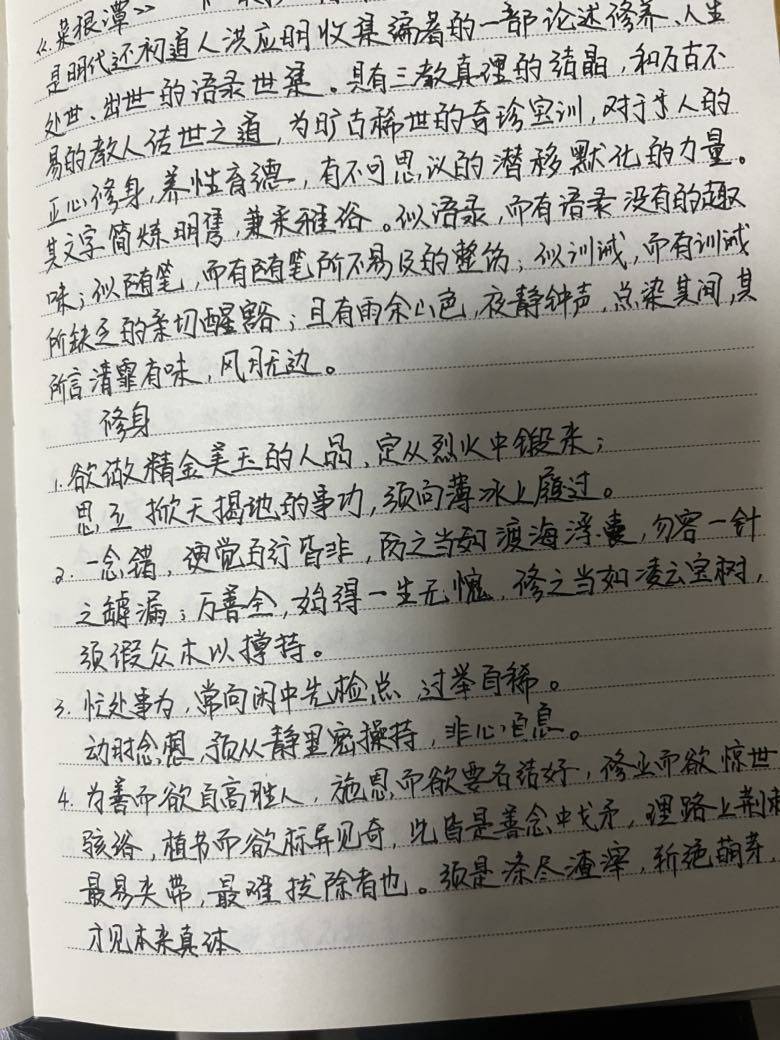 《菜根谭》
是明代还初道人洪应明收集编著的一部论述修养、人生
处世、出世的语录世集。具有三教真理的结晶,和万古不
易的教人传世之道,为旷古稀世的奇珍宝训,对于人的
正心修身,养性育德,有不可思议的潜移默化的力量。
其文字简炼明隽,兼采雅俗。似语录,而有语录没有的趣
味;似随笔,而有随笔所不易及的整饬;似训诫,而有训诫
所缺乏的亲切醒豁;且有雨余山色,夜静钟声,点染其间,其
所言清霏有味,风月无边。
修身
1.欲做精金美玉的人品,定从烈火中锻来;
思立掀天揭地的事功,须向薄冰上履过。
2.一念错,便觉百行皆非,防之当如渡海浮囊,勿容一针
之罅漏;万善全,始得一生无愧,修之当如凌云宝树,
须假众木以撑持。
3.忙处事为,常向闲中先检点,过举自稀。
动时念想,预从静里密操持,非心自息。
4.为善而欲自高胜人,施恩而欲要名结好,修业而欲惊世
骇俗,植节而欲标异见奇,此皆是善念中戈矛,理路上荆棘
最易夹带,最难拔除者也。须是涤尽渣滓,斩绝萌芽,
才见本来真体